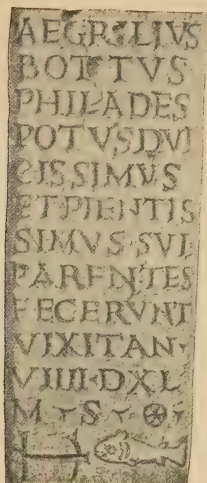 AEGRILIVS
BOTTVS
PHILADES
POTVS DVL
CISSIMVS
ET·PIENTIS
SIMVS·SVI
PARENTES
FECERVNT
VIXITAN
VIIII·DXL
M S